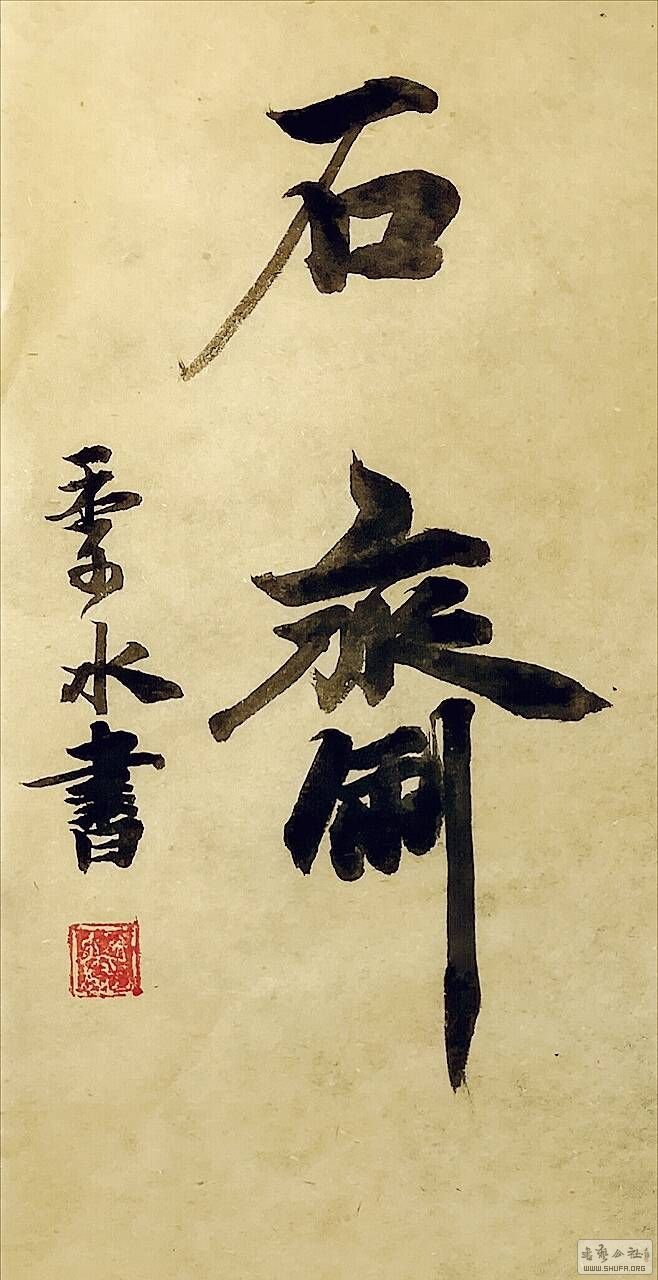 石齋
水書
書藝公社
WWW.SHUFA.ORG